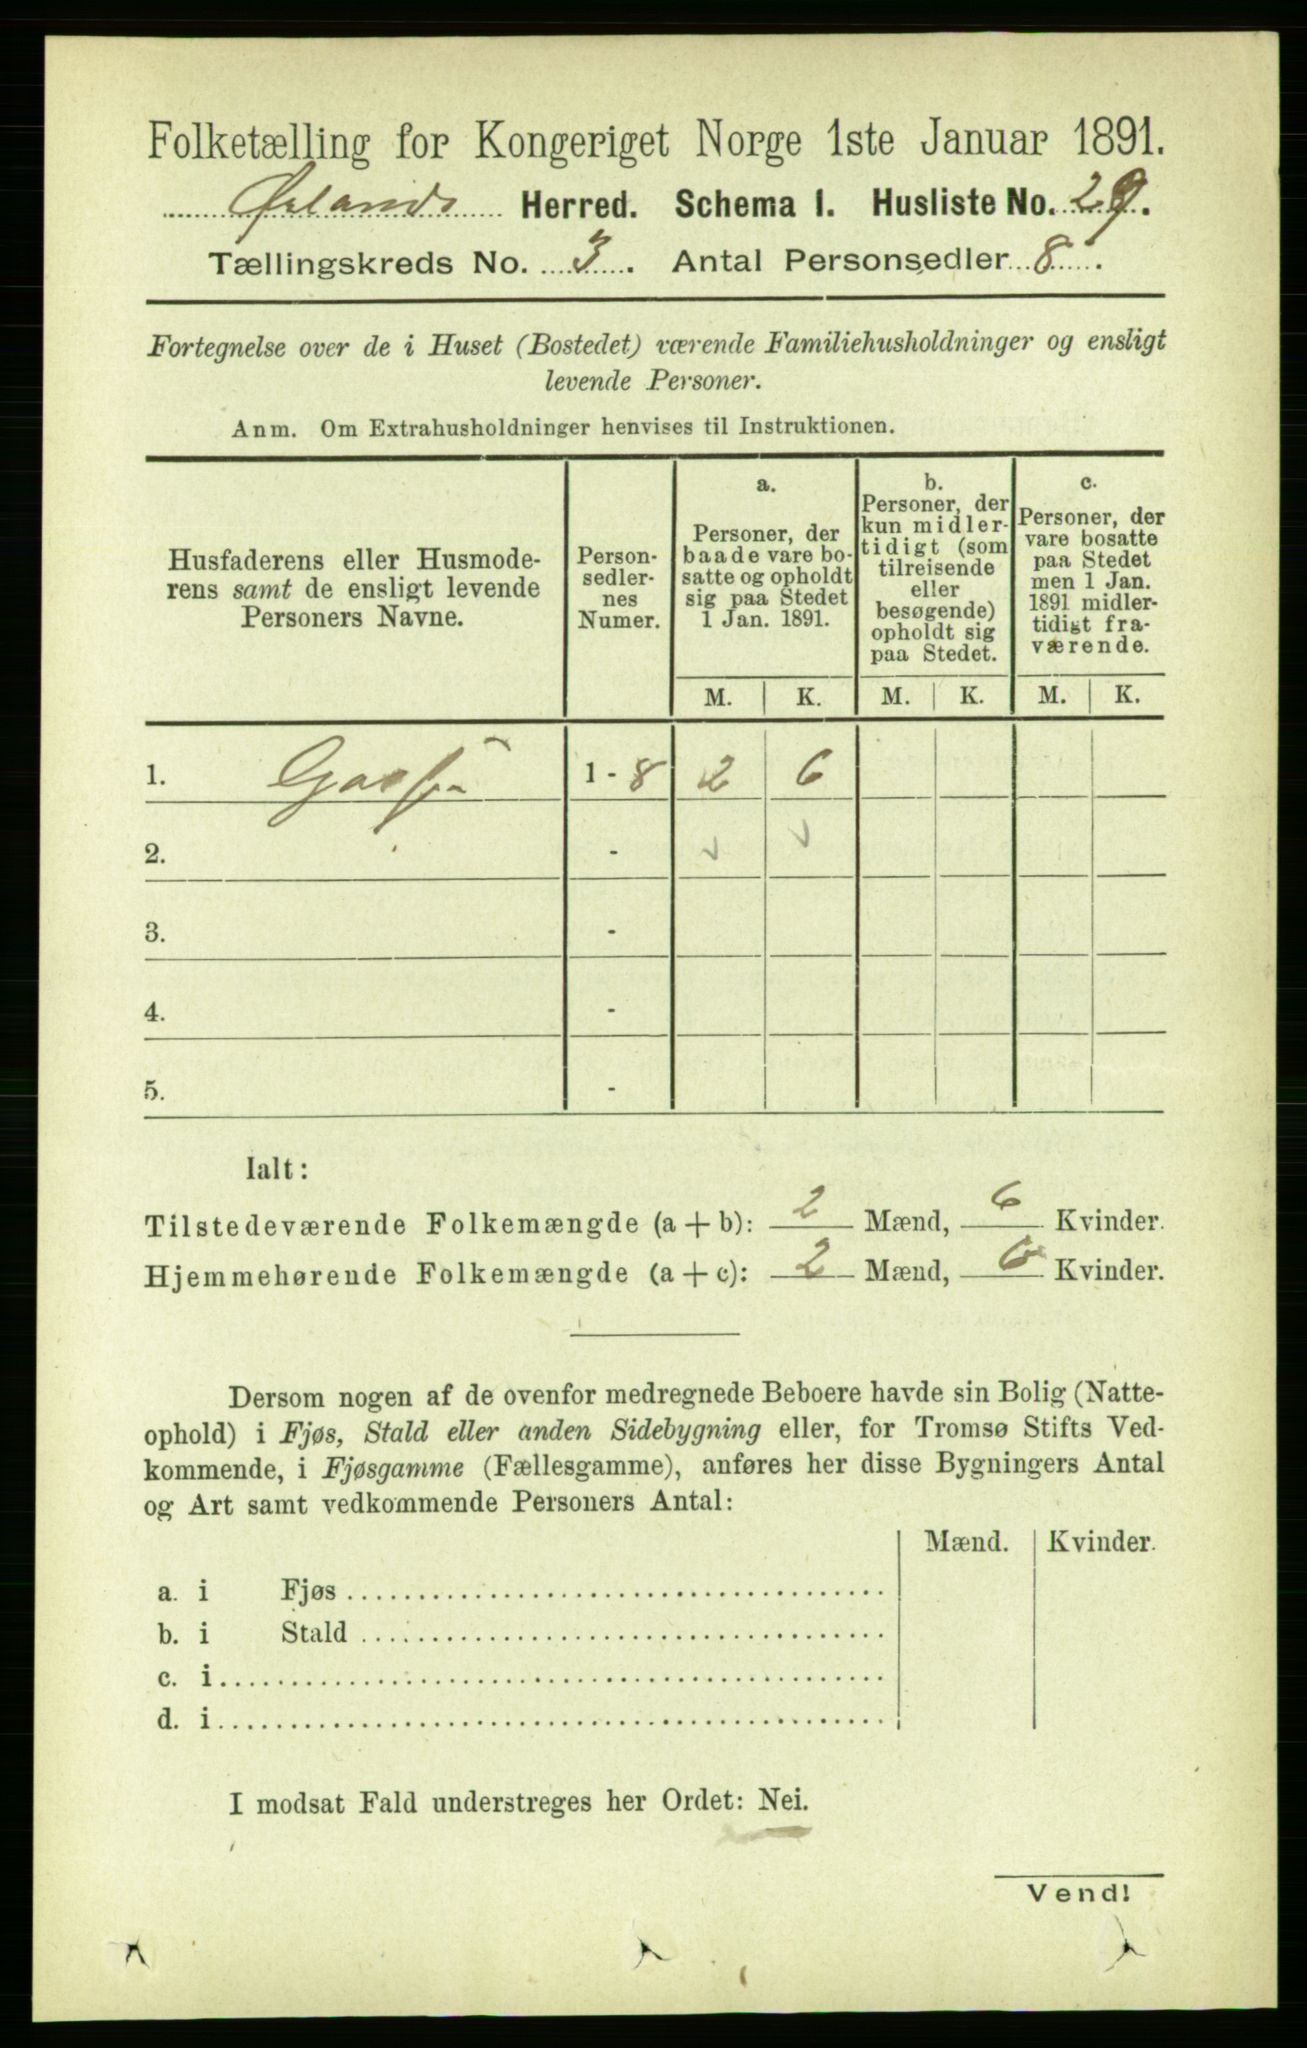 Folketælling for Kongeriget Norge 1ste Januar 1891.
Ørlands Herred. Schema 1. Husliste No. 29.
Tællingskreds No. 3. Antal Personsedler 8.
Fortegnelse over de i Huset (Bostedet) værende Familiehusholdninger og ensligt
levende Personer.
Anm. Om Extrahusholdninger henvises til Instruktionen.
Husfaderens eller Husmode-
rens samt de ensligt levende
Personers Navne.
Person-
sedler-
nes
Numer.
a.
Personer, der
baade vare bo-
satte og opholdt
sig paa Stedet
1 Jan. 1891.
b.
Personer, der
kun midler-
tidigt (som
tilreisende
eller
besøgende)
opholdt sig
paa Stedet.
c.
Personer, der
vare bosatte
paa Stedet
men 1 Jan.
1891 midler-
tidigt fra-
værende.
M. K. M. K. M. K.
1. 1 - 8 2 6
2. -
3. -
4. -
5. -
Ialt:
Tilstedeværende Folkemængde (a + b): 2 Mænd, 6 Kvinder.
Hjemmehørende Folkemængde (a + c): 2 Mænd, 6 Kvinder.
Dersom nogen af de ovenfor medregnede Beboere havde sin Bolig (Natte-
ophold) i Fjøs, Stald eller anden Sidebygning eller, for Tromsø Stifts Ved-
kommende, i Fjøsgamme (Fællesgamme), anføres her disse Bygningers Antal
og Art samt vedkommende Personers Antal:
Mænd. Kvinder.
a. i Fjøs
b. i Stald
c. i
d. i
I modsat Fald understreges her Ordet: Nei.
Vend!